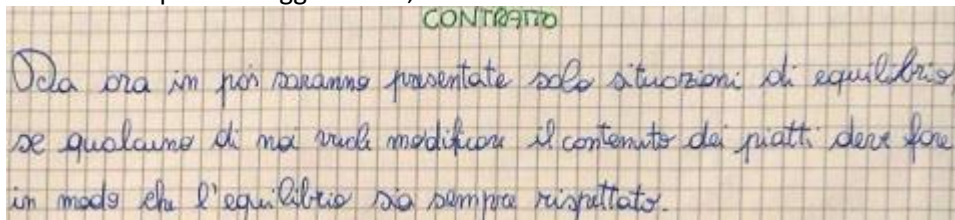 CONTRATTO
Da ora in poi saranno presentate solo situazioni di equilibrio,
se qualcuno di noi vuole modificare il contenuto dei piatti deve fare
in modo che l'equilibrio sia sempre rispettato.